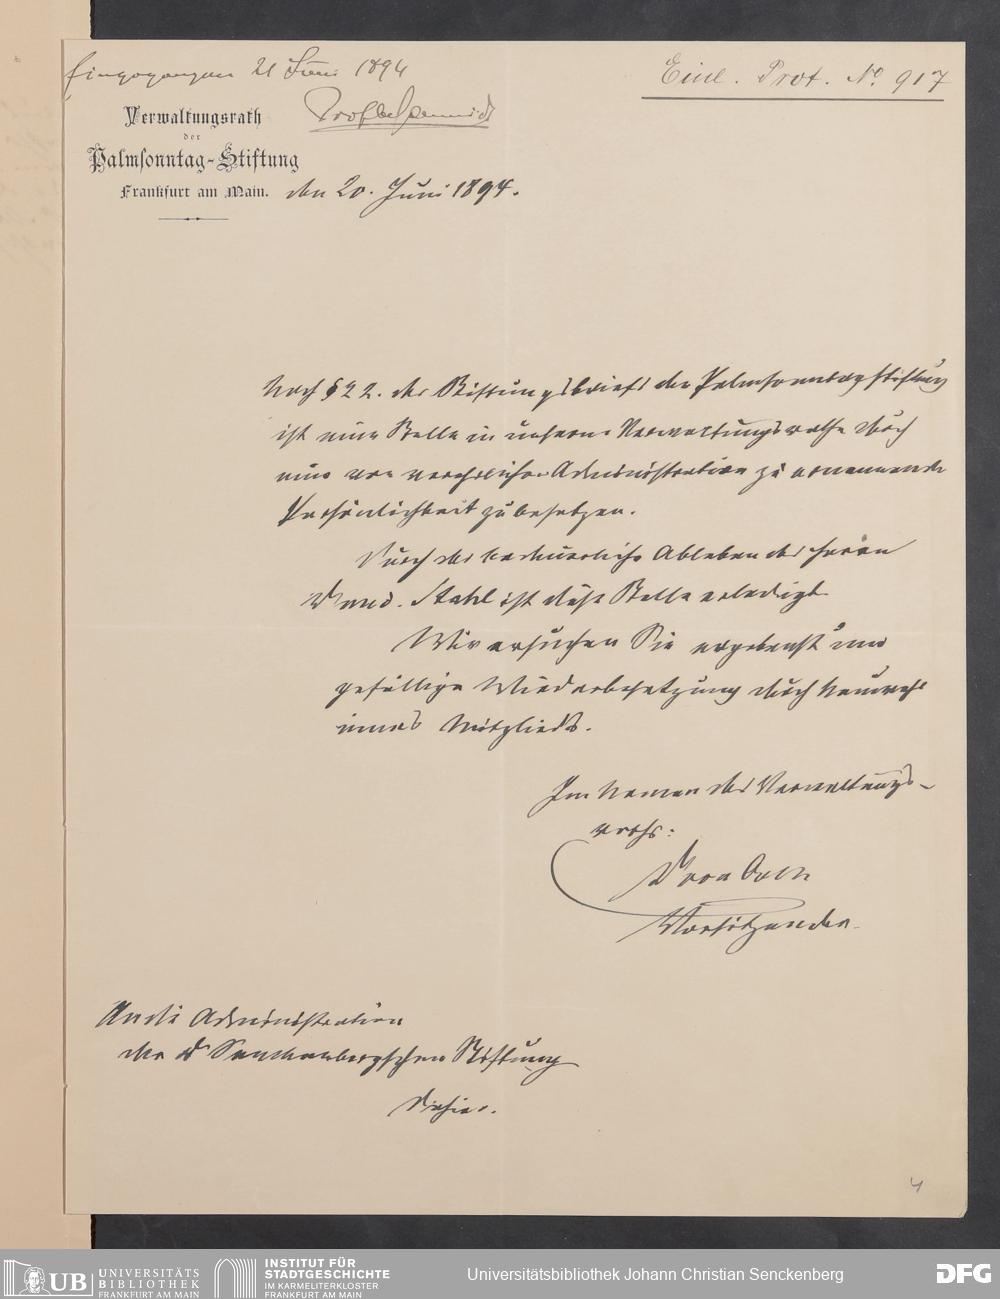 Eingegangen 21 Juni 1894
Einl. Prot. No. 917
Verwaltungsrath
der
Palmsonntag-Stiftung
Frankfurt am Main.
den 20. Juni 1894.
Nach § 22. des Stiftungsbriefs der Palmsonntagstiftung
ist eine Stelle in unserem Verwaltungsrathe durch
eine von verehrlicher Administration zu ernennende
Persönlichkeit zu besetzen.
Durch das bedauerliche Ableben des Herrn
Stahl ist diese Stelle erledigt
Wir ersuchen Sie ergebenst um
gefällige Wiederbesetzung durch Neuwahl
eines Mitglieds.
Im Namen des Verwaltungs-
raths:
Vorsitzender.
An die Administration
der Dr Senckenbergischen Stiftung
Dahier.
4
UB UNIVERSITÄTS
BIBLIOTHEK
FRANKFURT AM MAIN
INSTITUT FÜR
STADTGESCHICHTE
IM KARMELITERKLOSTER
FRANKFURT AM MAIN
Universitätsbibliothek Johann Christian Senckenberg
DFG